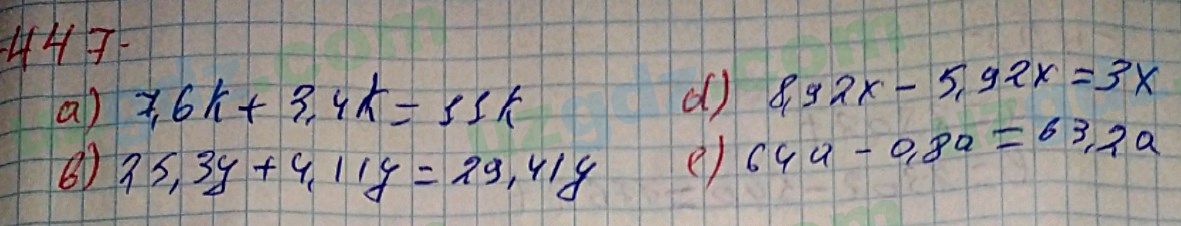 447.
а) 7,6k + 3,4k = 11k
в) 25,3y + 4,11y = 29,41y
d) 8,92x - 5,92x = 3x
е) 64a - 0,8a = 63,2a